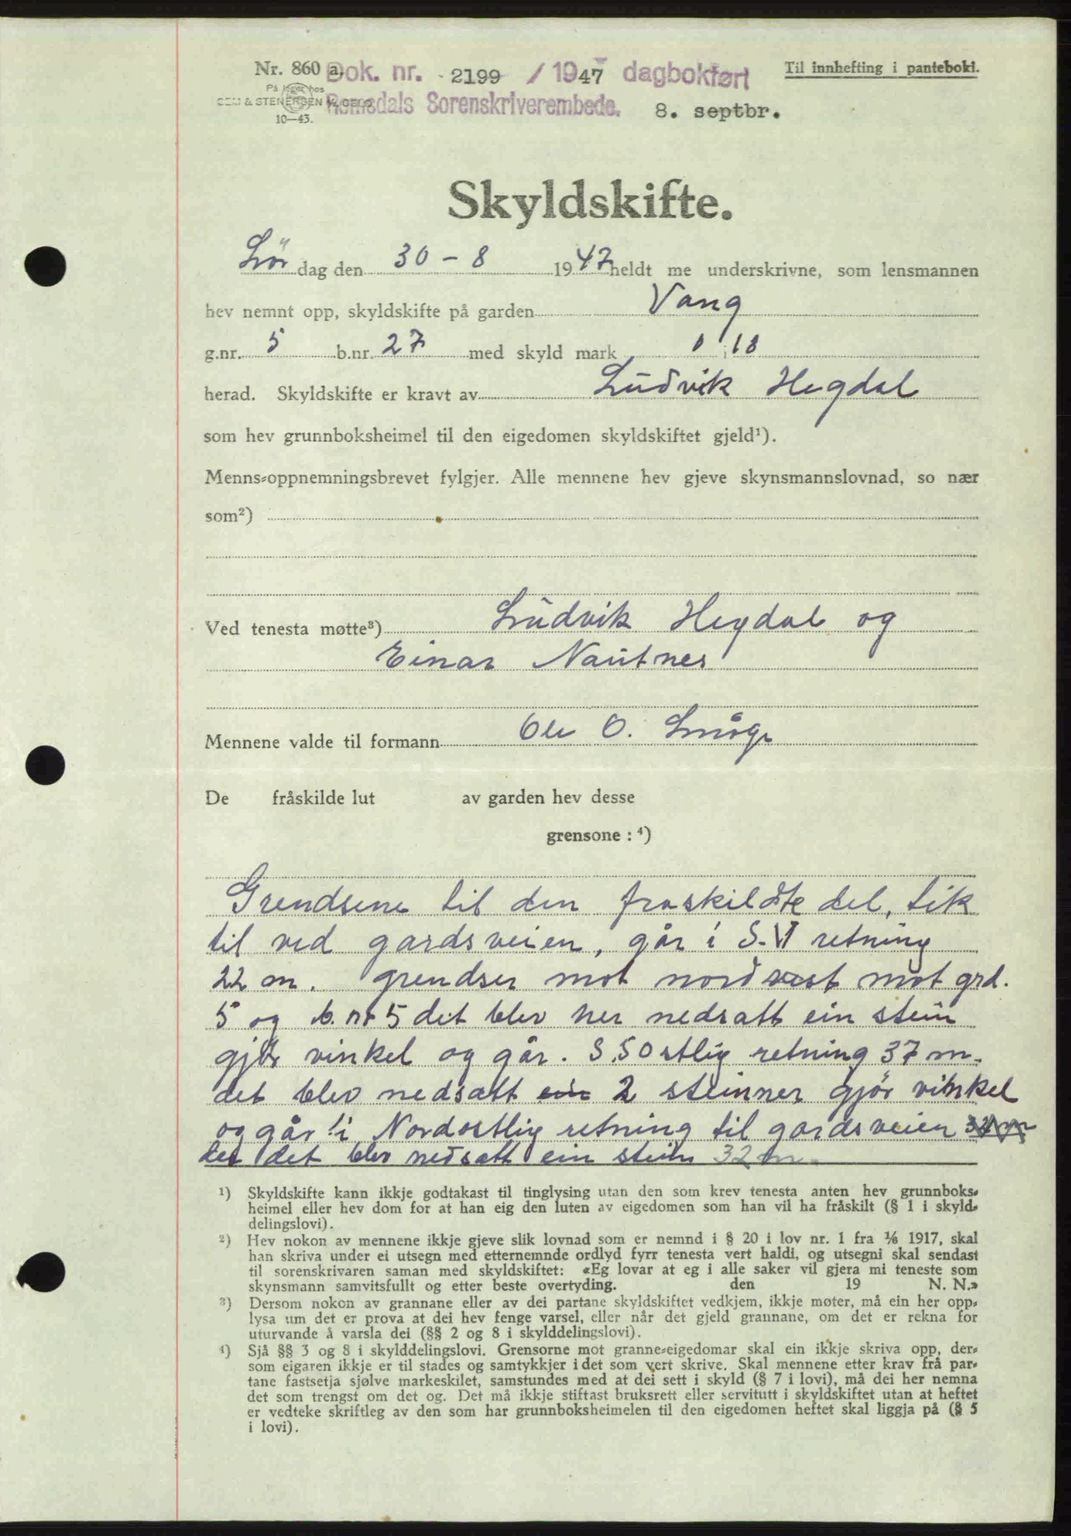 Nr. 860 a. Dok. nr. 2199 / 1947 dagbokført Til innhefting i pantebok.
På lager hos
SEM & STENERSEN A/S, OSLO Romsdals Sorenskriverembede. 8. septbr.
10—43.
Skyldskifte.
Lør dag den 30 - 8 1947 heldt me underskrivne, som lensmannen
hev nemnt opp, skyldskifte på garden Vang
g.nr. 5 b.nr. 27 med skyld mark 0 i 18
herad. Skyldskifte er kravt av Ludvik Hegdal
som hev grunnboksheimel til den eigedomen skyldskiftet gjeld¹).
Menns-oppnemningsbrevet fylgjer. Alle mennene hev gjeve skynsmannslovnad, so nær
som²)
Ved tenesta møtte³) Ludvik Hegdal og
Einar Nautnes
Mennene valde til formann Ole O.
De fråskilde lut av garden hev desse
grensone : ⁴)
Grendsene til den fraskildte del, tik
til ved gardsveien, går i S.V retning
22 m. grendser mot nordvest mot grd.
5 og b. nr 5 det blev her nedsatt ein stein
gjør vinkel og går. S.Sostlig retning 37 m.
det blev nedsatt ein 2 steinner gjør vinkel
og går i Nordostlig retning til gardsveien 32 m
her det blev nedsatt ein stein 32 m.
¹) Skyldskifte kann ikkje godtakast til tinglysing utan den som krev tenesta anten hev grunnboks-
heimel eller hev dom for at han eig den luten av eigedomen som han vil ha fråskilt (§ 1 i skyld-
delingslovi).
²) Hev nokon av mennene ikkje gjeve slik lovnad som er nemnd i § 20 i lov nr. 1 fra ⅙ 1917, skal
han skriva under ei utsegn med etternemnde ordlyd fyrr tenesta vert haldi, og utsegni skal sendast
til sorenskrivaren saman med skyldskiftet: «Eg lovar at eg i alle saker vil gjera mi teneste som
skynsmann samvitsfullt og etter beste overtyding. den 19 N. N.»
³) Dersom nokon av grannane eller av dei partane skyldskiftet vedkjem, ikkje møter, må ein her opp-
lysa um det er prova at dei hev fenge varsel, eller når det gjeld grannane, om det er rekna for
uturvande å varsla dei (§§ 2 og 8 i skylddelingslovi).
⁴) Sjå §§ 3 og 8 i skylddelingslovi. Grensorne mot granne-eigedomar skal ein ikkje skriva opp, der-
som eigaren ikkje er til stades og samtykkjer i det som vert skrive. Skal mennene etter krav frå par-
tane fastsetja sjølve markeskilet, samstundes med at dei sett i skyld (§ 7 i lovi), må dei her nemna
det som trengst om det og. Det må ikkje stiftast bruksrett eller servitutt i skyldskiftet utan at heftet
er vedteke skriftleg av den som har grunnboksheimelen til den eigedomen heftet skal liggja på (§ 5
i lovi).